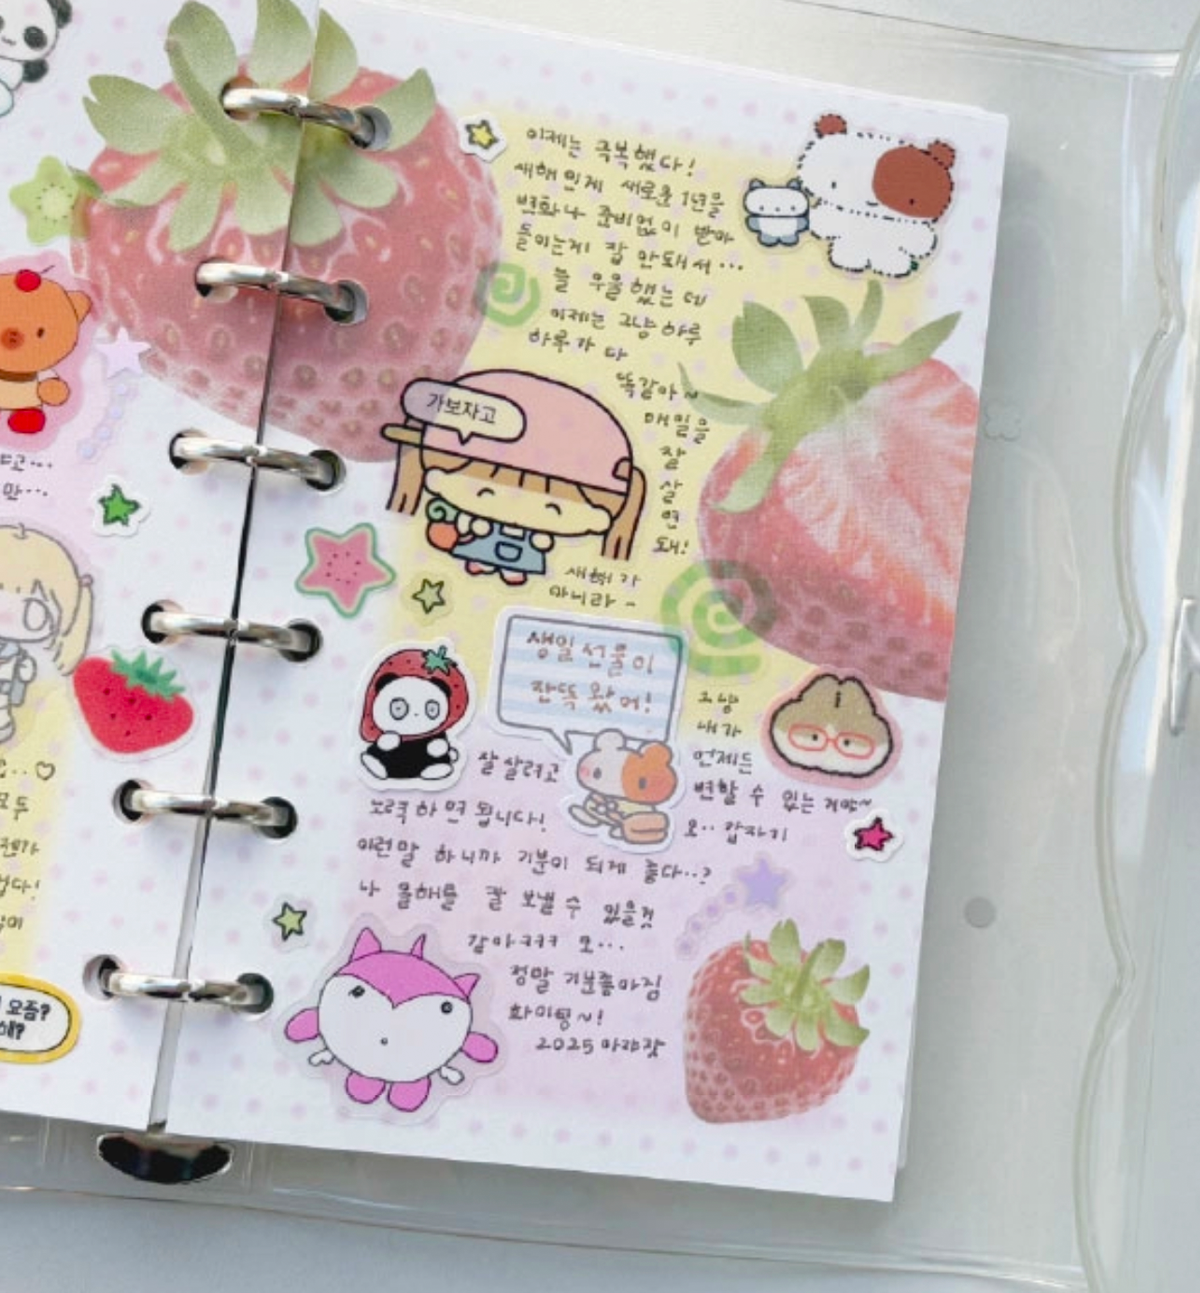 야고...
만...
요..♡
모두
젠가
겁다!
심이
요즘?
해?
이제는 극복했다!
새해인게 새로운 1년을
변화나 준비없이 받아
들이는게 참 안돼서...
늘 우울했는데
이제는 그냥 하루
하루가 다
똑같아~
매일을
잘
살
면
돼!
가보자고
새해가
아니라~
생일선물이
잔뜩 왔어!
그냥
내가
언제든
변할 수 있는거야~
오.. 갑자기
잘살려고
노력하면 됩니다!
이런말 하니까 기분이 되게 좋다..?
나 올해를 잘 보낼 수 있을것
같아ㅋㅋㅋ 오...
정말 기분좋아짐
화이팅~!
2025 아자잣